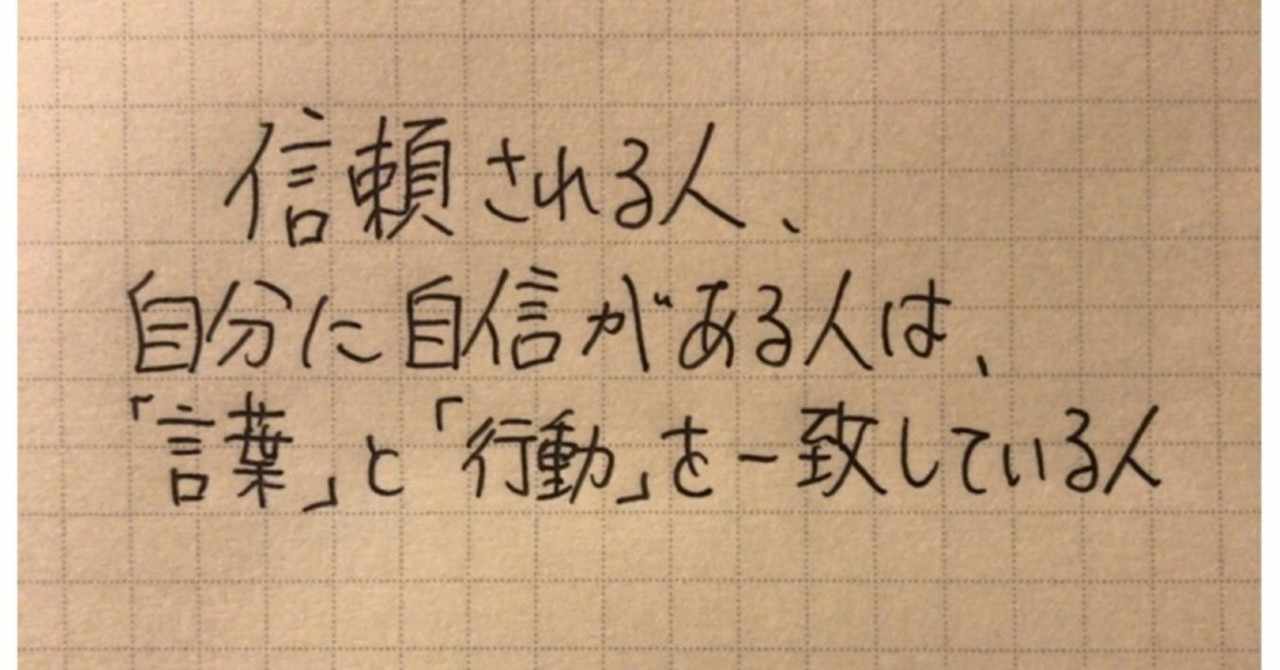 信頼される人、
自分に自信がある人は、
「言葉」と「行動」を一致している人